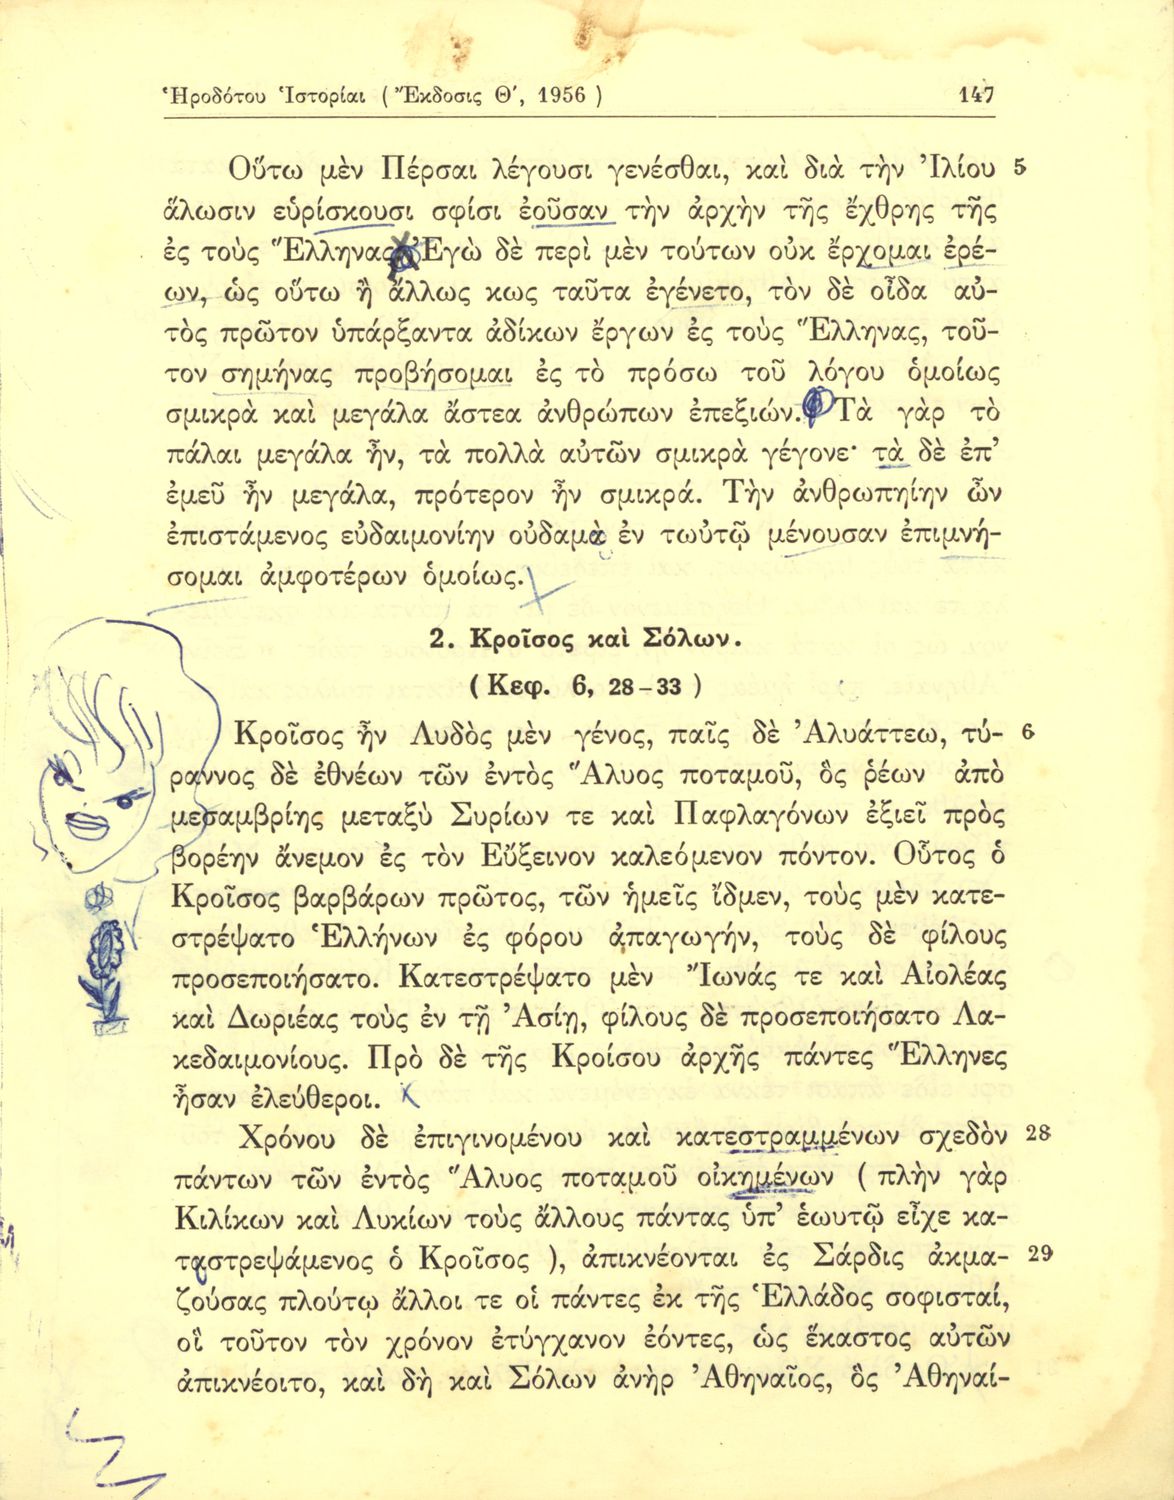 Ἡροδότου Ἱστορίαι ( Ἔκδοσις Θ', 1956 ) 147
Οὕτω μὲν Πέρσαι λέγουσι γενέσθαι, καὶ διὰ τὴν Ἰλίου 5
ἅλωσιν εὑρίσκουσι σφίσι ἐοῦσαν τὴν ἀρχὴν τῆς ἔχθρης τῆς
ἐς τοὺς Ἕλληνας. Ἐγὼ δὲ περὶ μὲν τούτων οὐκ ἔρχομαι ἐρέ-
ων, ὡς οὕτω ἢ ἄλλως κως ταῦτα ἐγένετο, τὸν δὲ οἶδα αὐ-
τὸς πρῶτον ὑπάρξαντα ἀδίκων ἔργων ἐς τοὺς Ἕλληνας, τοῦ-
τον σημήνας προβήσομαι ἐς τὸ πρόσω τοῦ λόγου ὁμοίως
σμικρὰ καὶ μεγάλα ἄστεα ἀνθρώπων ἐπεξιών. Τὰ γὰρ τὸ
πάλαι μεγάλα ἦν, τὰ πολλὰ αὐτῶν σμικρὰ γέγονε· τὰ δὲ ἐπ'
ἐμεῦ ἦν μεγάλα, πρότερον ἦν σμικρά. Τὴν ἀνθρωπηίην ὦν
ἐπιστάμενος εὐδαιμονίην οὐδαμὰ ἐν τωὐτῷ μένουσαν ἐπιμνή-
σομαι ἀμφοτέρων ὁμοίως.
2. Κροῖσος καὶ Σόλων.
( Κεφ. 6, 28-33 )
Κροῖσος ἦν Λυδὸς μὲν γένος, παῖς δὲ Ἀλυάττεω, τύ- 6
ραννος δὲ ἐθνέων τῶν ἐντὸς Ἅλυος ποταμοῦ, ὃς ῥέων ἀπὸ
μεσαμβρίης μεταξὺ Συρίων τε καὶ Παφλαγόνων ἐξιεῖ πρὸς
βορέην ἄνεμον ἐς τὸν Εὔξεινον καλεόμενον πόντον. Οὗτος ὁ
Κροῖσος βαρβάρων πρῶτος, τῶν ἡμεῖς ἴδμεν, τοὺς μὲν κατε-
στρέψατο Ἑλλήνων ἐς φόρου ἀπαγωγήν, τοὺς δὲ φίλους
προσεποιήσατο. Κατεστρέψατο μὲν Ἴωνάς τε καὶ Αἰολέας
καὶ Δωριέας τοὺς ἐν τῇ Ἀσίῃ, φίλους δὲ προσεποιήσατο Λα-
κεδαιμονίους. Πρὸ δὲ τῆς Κροίσου ἀρχῆς πάντες Ἕλληνες
ἦσαν ἐλεύθεροι.
Χρόνου δὲ ἐπιγινομένου καὶ κατεστραμμένων σχεδὸν 28
πάντων τῶν ἐντὸς Ἅλυος ποταμοῦ οἰκημένων ( πλὴν γὰρ
Κιλίκων καὶ Λυκίων τοὺς ἄλλους πάντας ὑπ' ἑωυτῷ εἶχε κα-
ταστρεψάμενος ὁ Κροῖσος ), ἀπικνέονται ἐς Σάρδις ἀκμα- 29
ζούσας πλούτῳ ἄλλοι τε οἱ πάντες ἐκ τῆς Ἑλλάδος σοφισταί,
οἳ τοῦτον τὸν χρόνον ἐτύγχανον ἐόντες, ὡς ἕκαστος αὐτῶν
ἀπικνέοιτο, καὶ δὴ καὶ Σόλων ἀνὴρ Ἀθηναῖος, ὃς Ἀθηναί-